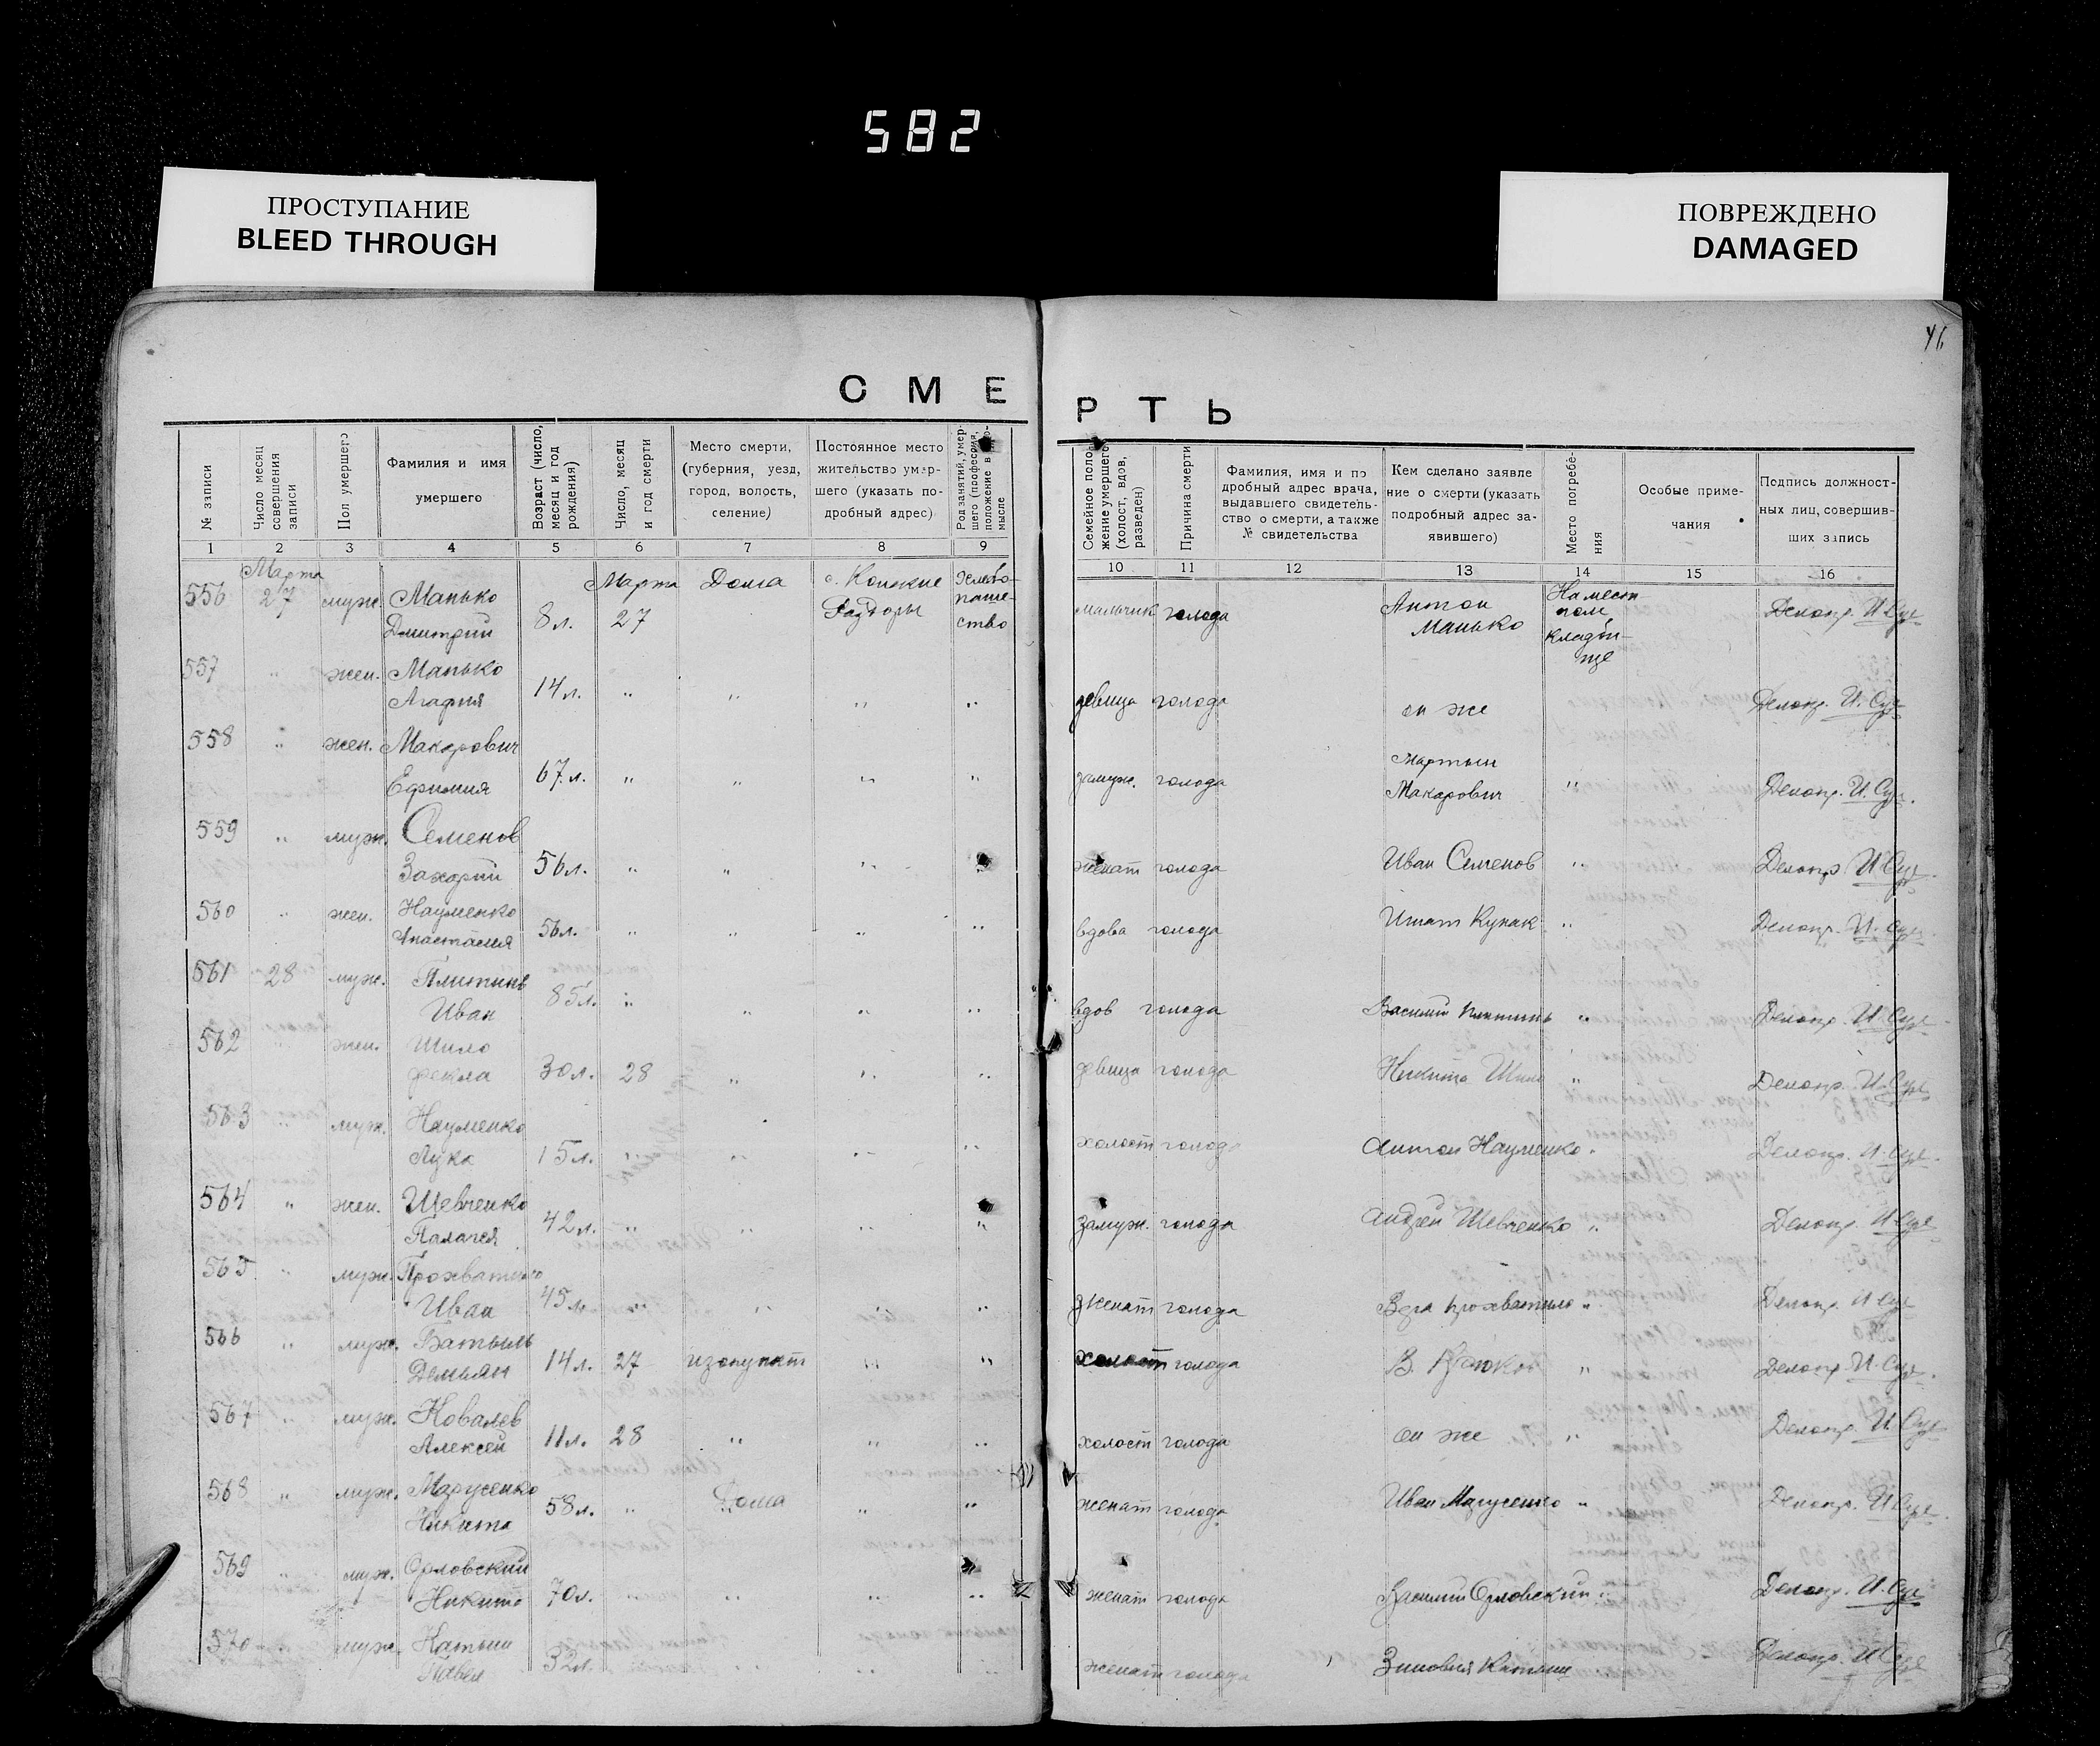 582
ПРОСТУПАНИЕ
BLEED THROUGH
ПОВРЕЖДЕНО
DAMAGED
46
СМЕРТЬ
№ записи
Число месяц совершения записи
Пол умершего
Фамилия и имя умершего
Возраст (число, месяц и год рождения)
Число, месяц и год смерти
Место смерти, (губерния, уезд, город, волость, селение)
Постоянное место жительство умершего (указать подробный адрес)
Род занятий, умершего (профессия, положение в промысле
Семейное положение умершего (холост, вдов, разведен)
Причина смерти
Фамилия, имя и подробный адрес врача, выдавшего свидетельство о смерти, а также № свидетельства
Кем сделано заявление о смерти (указать подробный адрес заявившего)
Место погребения
Особые примечания
Подпись должностных лиц, совершивших запись
1 2 3 4 5 6 7 8 9 10 11 12 13 14 15 16
556 Марта 27 муж. Манько Дмитрий 8 л. Марта 27 Дома с. Конские Раздоры хлебопашество мальчик голода Антон Манько На местном кладбище Делопр.
557 " жен. Манько Агафия 14 л. " " " " девица голода он же Делопр.
558 " жен. Макарович Ефимия 67 л. " " " " замуж. голода Мартын Макарович " Делопр.
559 " муж. Семенов Захарий 56 л. " " " " женат голода Иван Семенов " Делопр.
560 " жен. Науменко Анастасия 56 л. " " " " вдова голода Игнат Кунак " Делопр.
561 28 муж. Плитинь Иван 85 л. " " " " вдов голода Василий Плитинь " Делопр.
562 " жен. Шило Фекла 30 л. 28 " " " девица голода Никита Шило " Делопр.
563 " муж. Науменко Лука 15 л. " " " " холост голода Антон Науменко " Делопр.
564 " жен. Шевченко Палагея 42 л. " " " " замуж. голода Андрей Шевченко " Делопр.
565 " муж. Прохватило Иван 45 л. " " " " женат голода Вера Прохватило " Делопр.
566 " муж. Демьян 14 л. 27 изопункт " " холост голода В. " Делопр.
567 " муж. Ковалев Алексей 11 л. 28 " " " холост голода он же " Делопр.
568 " муж. Мазусенко Никита 58 л. " Дома " " женат голода Иван Мазусенко " Делопр.
569 " муж. Орловский Никита 70 л. " " " " женат голода Василий Орловский " Делопр.
570 " муж. Павел 32 л. " " " женат голода Зиновия Делопр.